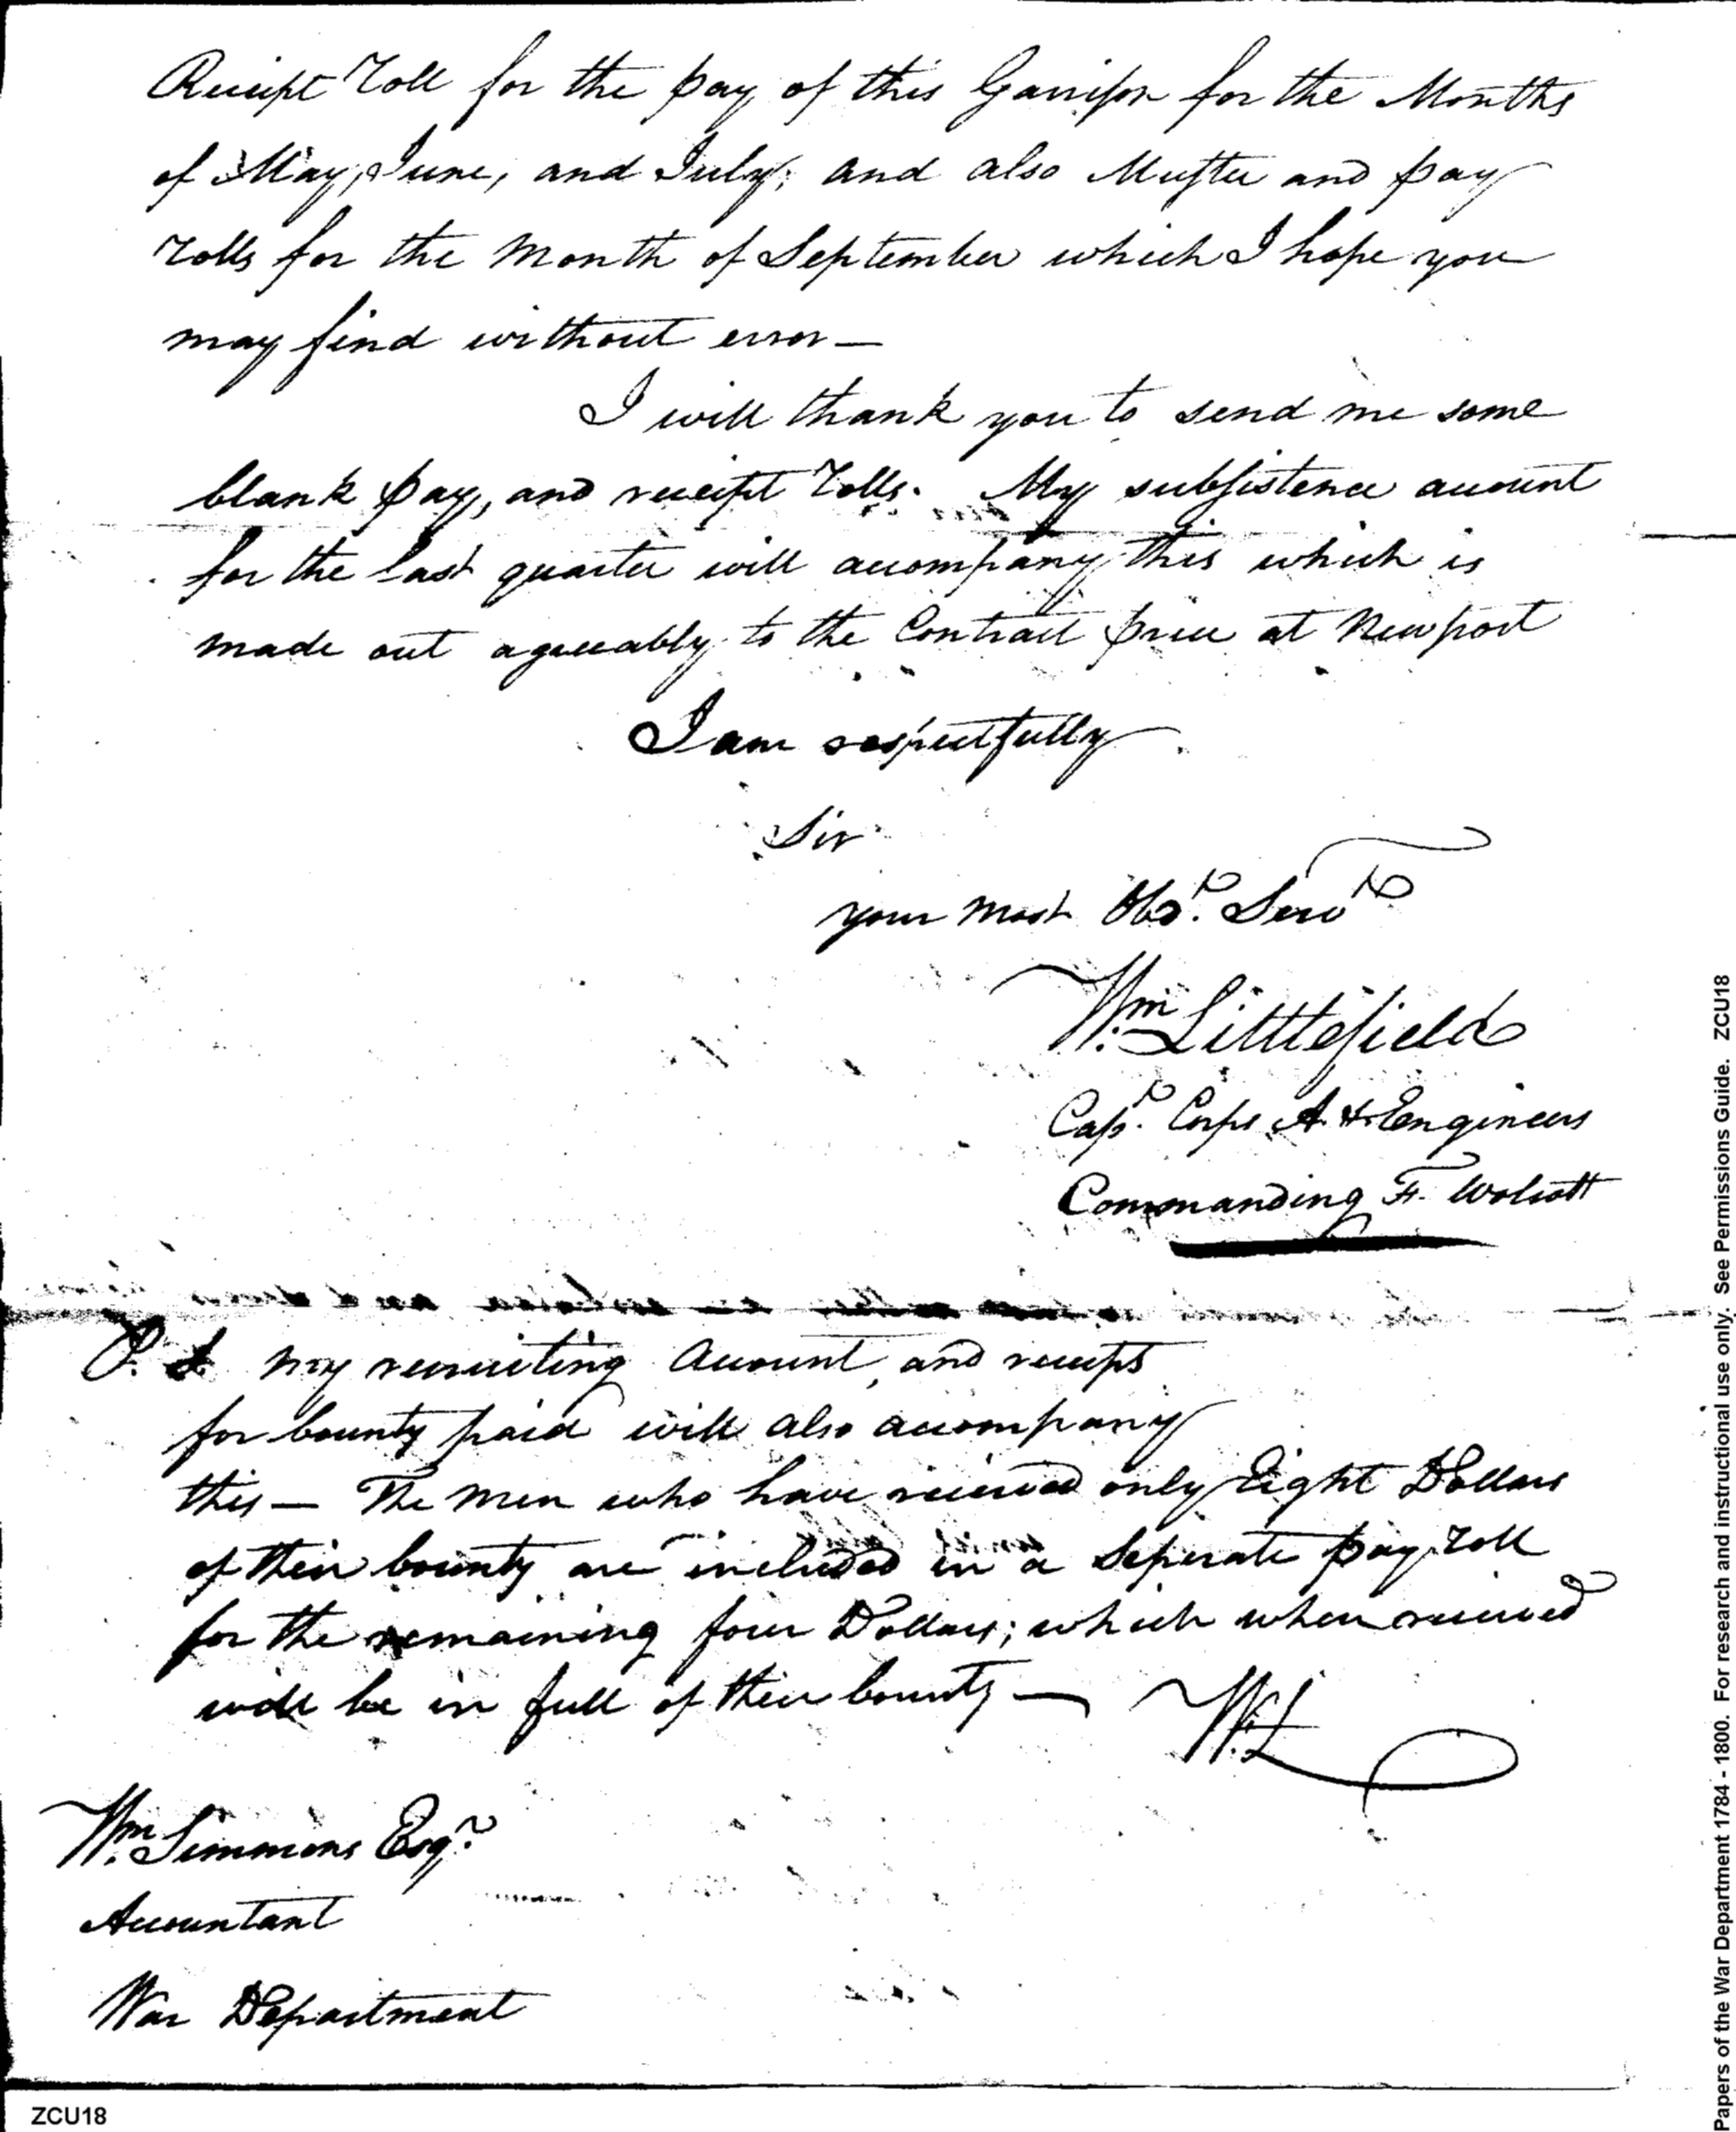 Receipt roll for the pay of this Garrison for the Months
of May, June, and July; and also Muster and pay
rolls for the Month of September which I hope you
may find without error—
I will thank you to send me some
blank pay, and receipt rolls. My subsistence account
for the last quarter will accompany this which is
made out agreeably to the Contract price at Newport
I am respectfully
Sir
your most Obt. Servt
Wm. Littlefield
Capt. Corps A. & Engineers
Commanding Ft. Wolcott
P. S. My recruiting Account, and receipts
for bounty paid will also accompany
this— The men who have received only Eight Dollars
of their bounty are included in a Seperate pay roll
for the remaining four Dollars; which when received
will be in full of their bounty— W. L
Wm. Simmons Esqr.
Accountant
War Department
ZCU18
Papers of the War Department 1784 - 1800. For research and instructional use only. See Permissions Guide. ZCU18